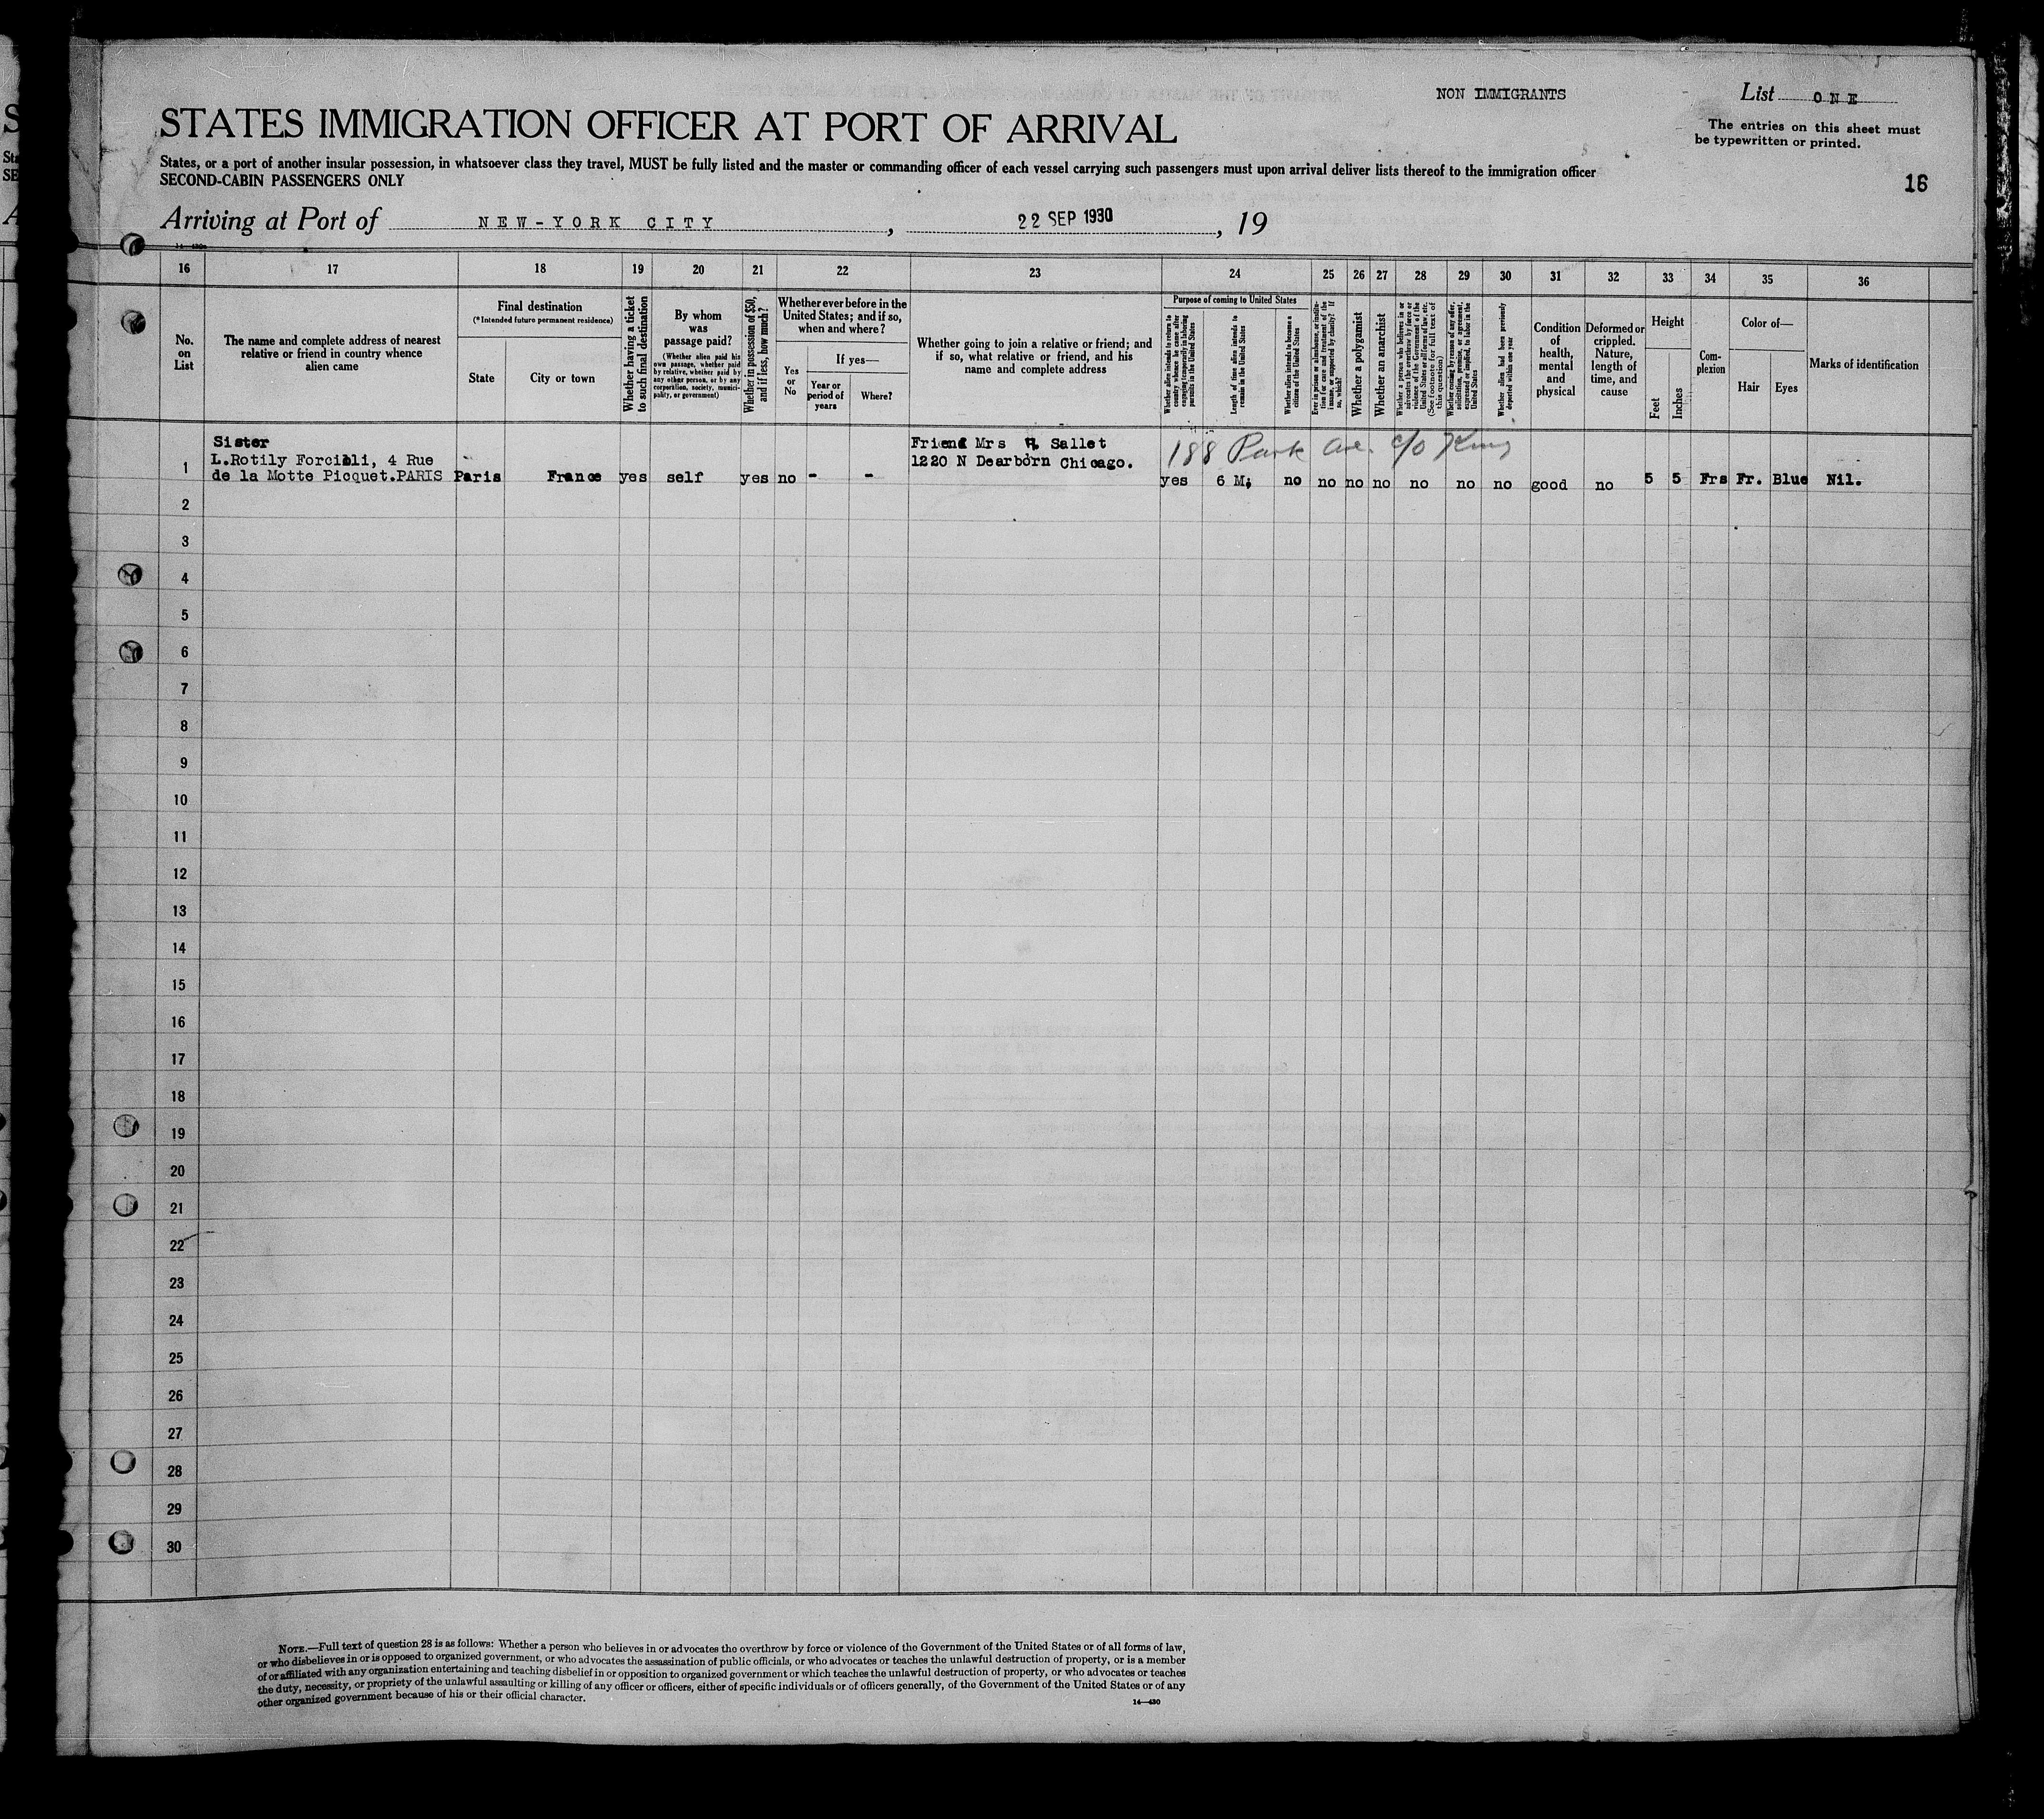 NON IMMIGRANTS
List ONE
STATES IMMIGRATION OFFICER AT PORT OF ARRIVAL
The entries on this sheet must
be typewritten or printed.
States, or a port of another insular possession, in whatsoever class they travel, MUST be fully listed and the master or commanding officer of each vessel carrying such passengers must upon arrival deliver lists thereof to the immigration officer
SECOND-CABIN PASSENGERS ONLY
16
Arriving at Port of NEW-YORK CITY, 22 SEP 1930, 19
16 17 18 19 20 21 22 23 24 25 26 27 28 29 30 31 32 33 34 35 36
No.
on
List
The name and complete address of nearest
relative or friend in country whence
alien came
Final destination
(*Intended future permanent residence)
State
City or town
Whether having a ticket
to such final destination
By whom
was
passage paid?
(Whether alien paid his
own passage, whether paid
by relative, whether paid by
any other person, or by any
corporation, society, munici-
pality, or government)
Whether in possession of $50,
and if less, how much?
Whether ever before in the
United States; and if so,
when and where?
Yes
or
No
If yes—
Year or
period of
years
Where?
Whether going to join a relative or friend; and
if so, what relative or friend, and his
name and complete address
Purpose of coming to United States
Whether alien intends to return to
country whence he came after
engaging temporarily in laboring
pursuits in the United States
Length of time alien intends to
remain in the United States
Whether alien intends to become a
citizen of the United States
Ever in prison or almshouse, or institu-
tion for care and treatment of the
insane, or supported by charity? If
so, which?
Whether a polygamist
Whether an anarchist
Whether a person who believes in or
advocates the overthrow by force or
violence of the Government of the
United States or all forms of law, etc.
(See footnote for full text of
this question)
Whether coming by reason of any offer,
solicitation, promise, or agreement,
expressed or implied, to labor in the
United States
Whether alien had been previously
deported within one year
Condition
of
health,
mental
and
physical
Deformed or
crippled.
Nature,
length of
time, and
cause
Height
Feet
Inches
Com-
plexion
Color of—
Hair
Eyes
Marks of identification
Sister
L.Rotily Forcioli, 4 Rue
de la Motte Picquet.PARIS
1
Paris France yes self yes no - -
Friend Mrs R. Sallet
1220 N Dearborn Chicago.
188 Park Ave. c/o King
yes 6 M; no no no no no no no good no 5 5 Frs Fr. Blue Nil.
2
3
4
5
6
7
8
9
10
11
12
13
14
15
16
17
18
19
20
21
22
23
24
25
26
27
28
29
30
NOTE.—Full text of question 28 is as follows: Whether a person who believes in or advocates the overthrow by force or violence of the Government of the United States or of all forms of law,
or who disbelieves in or is opposed to organized government, or who advocates the assassination of public officials, or who advocates or teaches the unlawful destruction of property, or is a member
of or affiliated with any organization entertaining and teaching disbelief in or opposition to organized government or which teaches the unlawful destruction of property, or who advocates or teaches
the duty, necessity, or propriety of the unlawful assaulting or killing of any officer or officers, either of specific individuals or of officers generally, of the Government of the United States or of any
other organized government because of his or their official character.
14—430